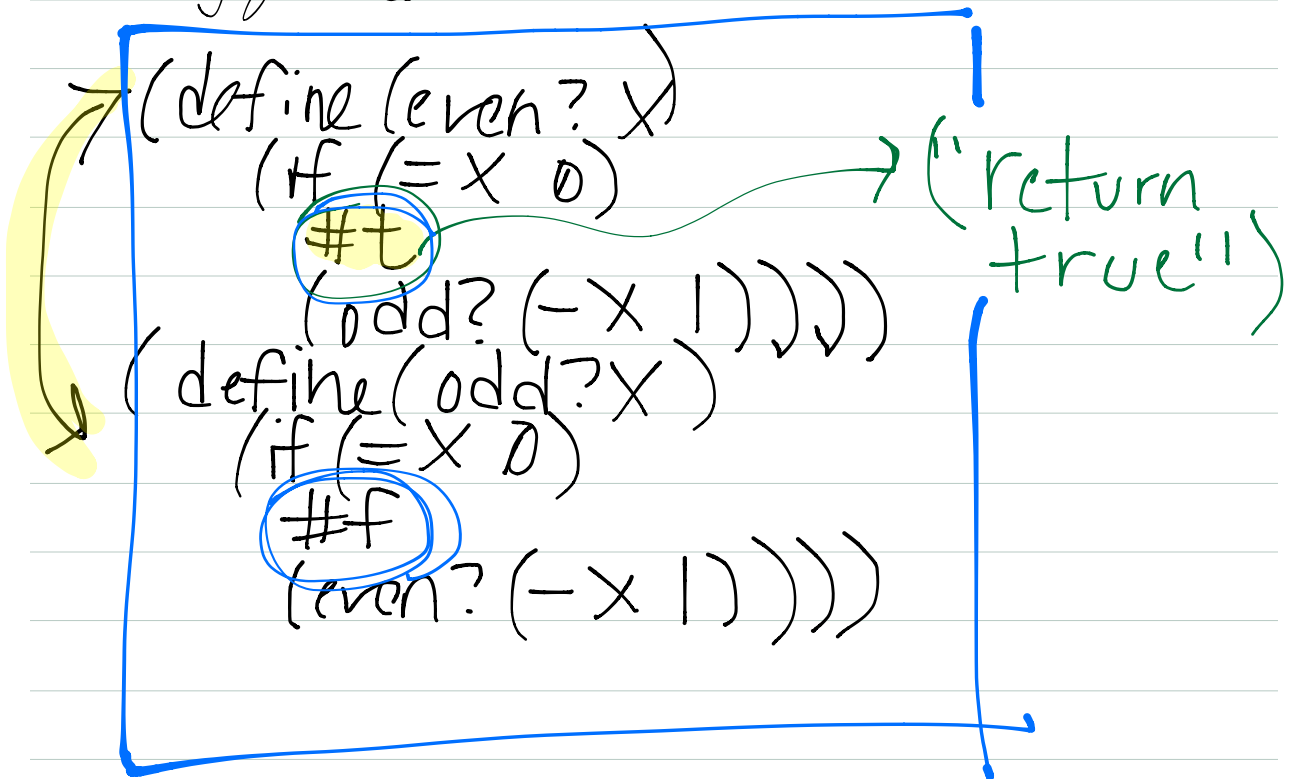 (define (even? x)
(if (= x 0)
#t
(odd? (- x 1))))
(define (odd? x)
(if (= x 0)
#f
(even? (- x 1))))
("return
true")